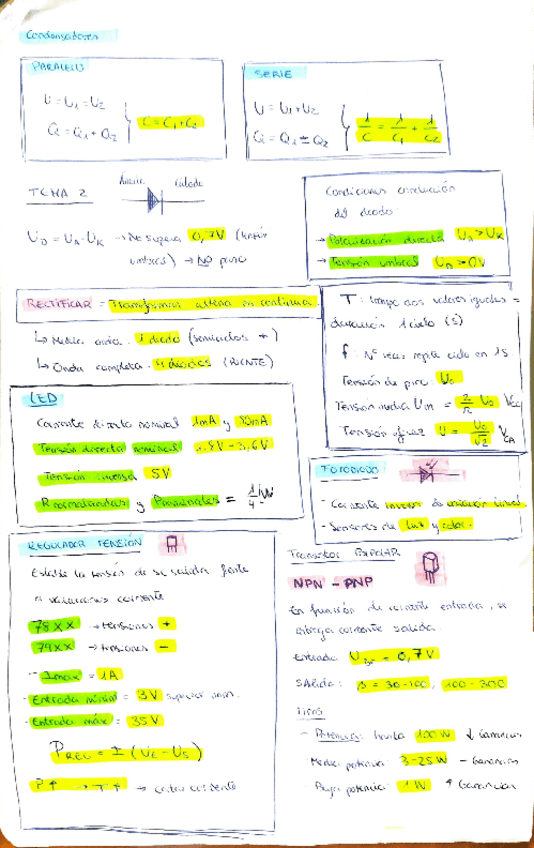 Condensadores
PARALELO
U = U1 = U2
Q = Q1 + Q2
C = C1 + C2
SERIE
U = U1 + U2
Q = Q1 = Q2
1/C = 1/C1 + 1/C2
TEMA 2
Ánodo Cátodo
UD = UA - UK → No supera 0,7V (tensión
umbral) → NO pasa
Condiciones conducción
del diodo
→ Polarización directa UA > UK
→ Tensión umbral UD > 0V
RECTIFICAR = Transformar alterna en continua
↳ Media onda: 1 diodo (semiciclos +)
↳ Onda completa: 4 diodos (PUENTE)
T: tiempo dos valores iguales =
duración 1 ciclo (s)
f: Nº veces repite ciclo en 1s
Tensión de pico: U0
Tensión media UM = 2/π U0 VCC
Tensión eficaz U = U0/√2 VCA
LED
Corriente directa nominal 1mA y 80mA
Tensión directa nominal 1,8V - 3,6V
Tensión inversa 5V
R normalizadas y Potenciales = 1/4 W
FOTODIODO
- Corriente inversa de variación lineal
- Sensores de luz y color
REGULADOR TENSIÓN
Estable la tensión de su salida frente
a variaciones corriente
78XX → tensiones +
79XX → tensiones -
- Imax = 1A
- Entrada mínima = 3V superior nom.
- Entrada máx = 35V
PREG = I (UE - US)
P↑ → T↑ →
Transistor BIPOLAR
NPN - PNP
En función de corriente entrada, se
entrega corriente salida.
Entrada UBE = 0,7V
SAlida: β = 30-100, 100-300
TIPOS
- Potencia: hasta 100W ↓ Ganancias
- Media potencia: 3-25W - Ganancias
- Baja potencia: 1W ↑ Ganancias